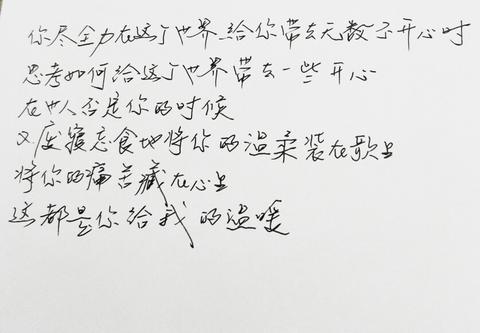 你尽全力在这个世界给你带去无数不开心时
思考如何给这个世界带去一些开心
在世人否定你的时候
又废寝忘食地将你的温柔装在歌上
将你的痛苦藏在心上
这都是你给我的温暖